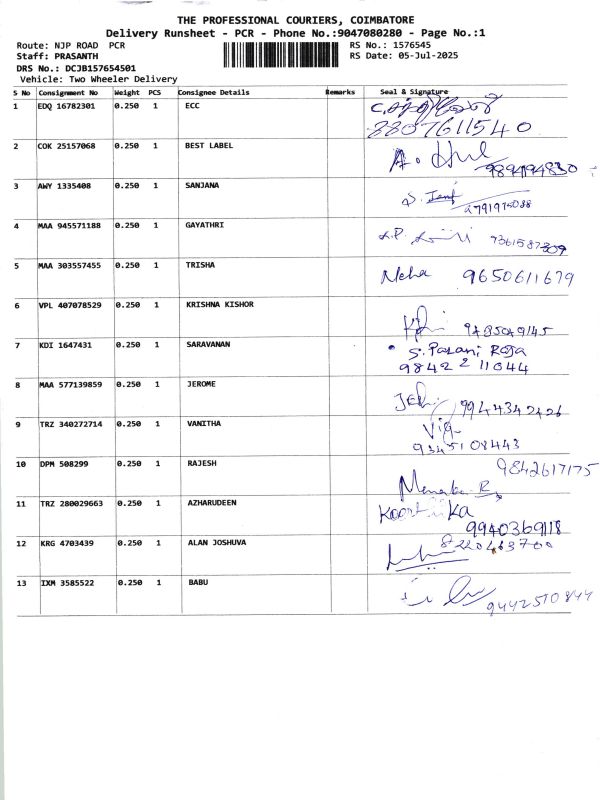 THE PROFESSIONAL COURIERS, COIMBATORE
Delivery Runsheet - PCR - Phone No.:9047080280 - Page No.:1
Route: NJP ROAD PCR
RS No.: 1576545
Staff: PRASANTH
RS Date: 05-Jul-2025
DRS No.: DCJB157654501
Vehicle: Two Wheeler Delivery
S No Consignment No Weight PCS Consignee Details Remarks Seal & Signature
1 EDQ 16782301 0.250 1 ECC
8807611540
2 COK 25157068 0.250 1 BEST LABEL A.
3 AWY 1335408 0.250 1 SANJANA
4 MAA 945571188 0.250 1 GAYATHRI
5 MAA 303557455 0.250 1 TRISHA Neha 9650611679
6 VPL 407078529 0.250 1 KRISHNA KISHOR
7 KDI 1647431 0.250 1 SARAVANAN S. Palani Raja
98422 11044
8 MAA 577139859 0.250 1 JEROME 9944342426
9 TRZ 340272714 0.250 1 VANITHA
9345108443
10 DPM 508299 0.250 1 RAJESH 9842617175
Menaka R
11 TRZ 280029663 0.250 1 AZHARUDEEN
9940369118
12 KRG 4703439 0.250 1 ALAN JOSHUVA
13 IXM 3585522 0.250 1 BABU 9442510844